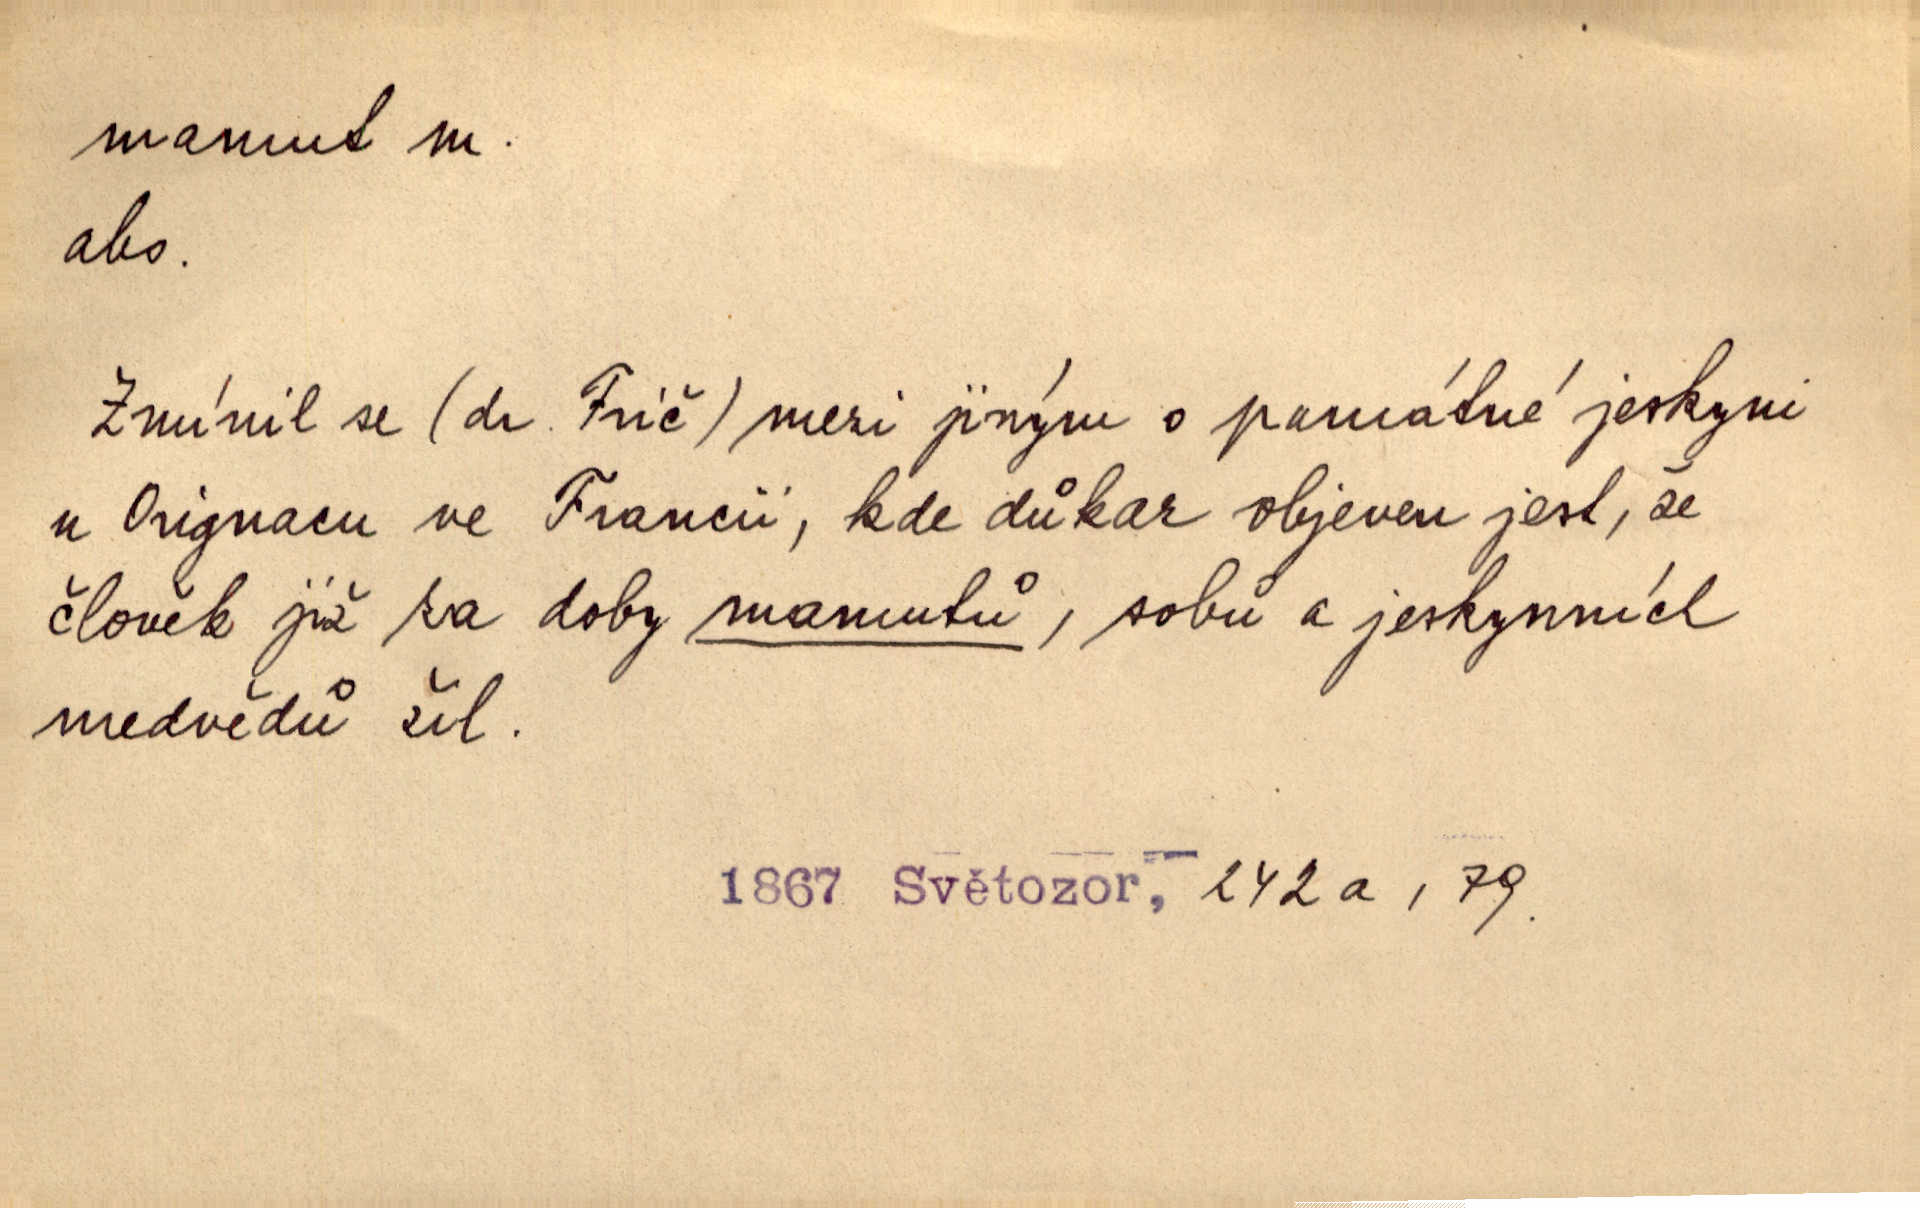 mamut m.
abs.
Zmínil se (dr. Frič) mezi jiným o památné jeskyni
u Orignacu ve Francii, kde důkaz objeven jest, že
člověk již za doby mamutů, sobů a jeskynních
medvědů žil.
1867 Světozor, 242 a, 79.